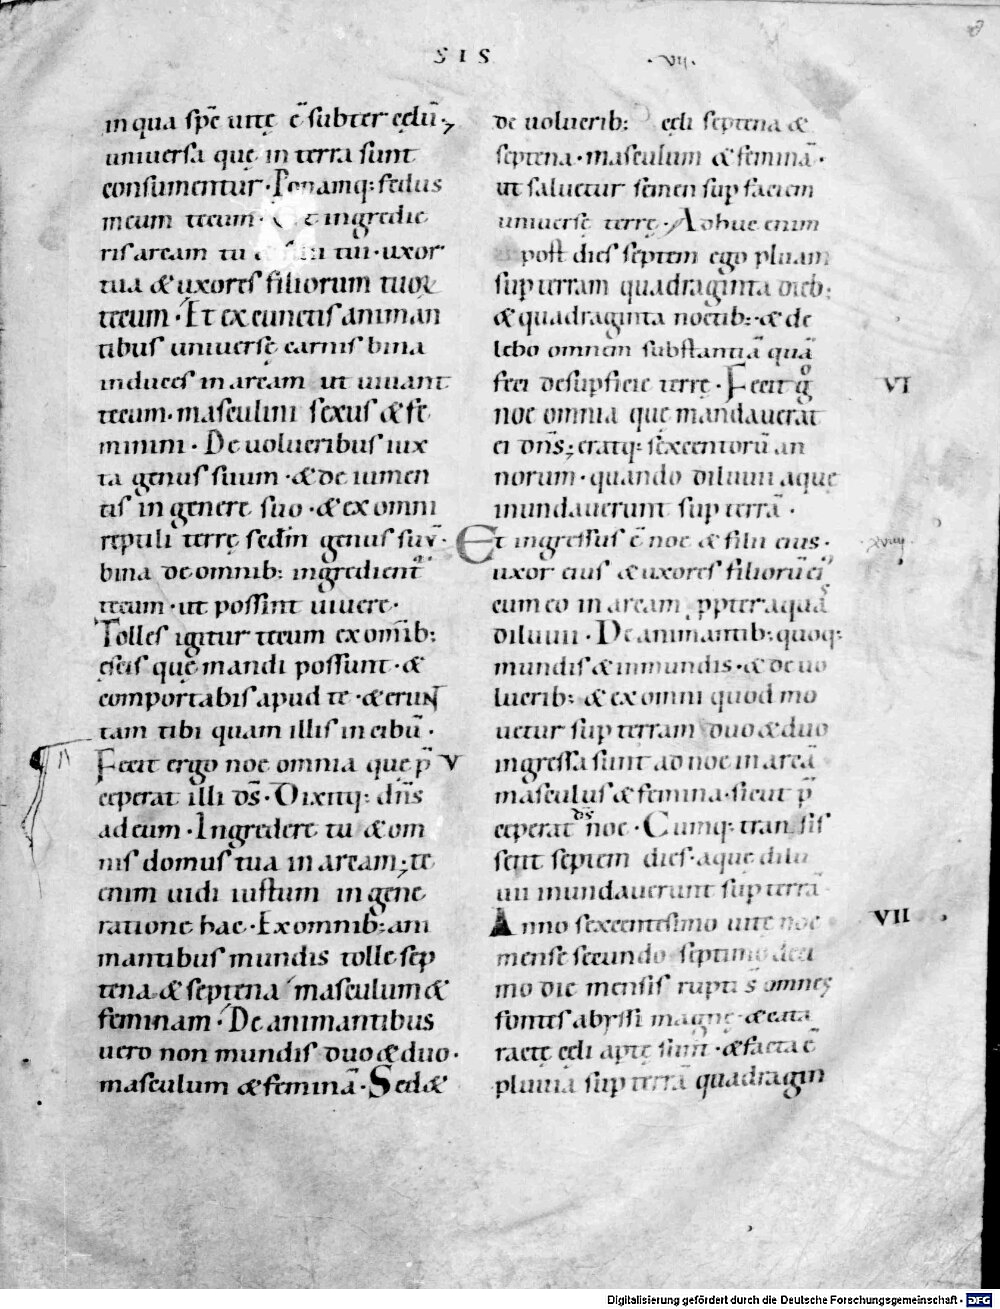 SIS
·VII·
in qua spc̄ uitę ē subter cęlū·,
uniuersa quę in terra sunt
consumentur· Ponamq: fedus
meum tecum· Et ingredie
ris arcam tu & filii tui· uxor
tua & uxores filiorum tuoꝝ
tecum· Et ex cunctis animan
tibus uniuersę carnis bina
induces in arcam ut uiuant
tecum· masculini sexus & fe
minini· De uolucribus iux
ta genus suum· & de iumen
tis in genere suo· & ex omni
reptili terrę scd̄m genus suū·
bina de omnib: ingredient̄
tecum· ut possint uiuere·
Tolles igitur tecum ex om̄ib:
escis quę mandi possunt· &
comportabis apud te· & erunt
tam tibi quam illis in cibū·
Fecit ergo noe omnia quę p̄
V
ceperat illi ds̄· Dixitq: dn̄s
ad eum· Ingredere tu & om
nis domus tua in arcam; te
enim uidi iustum in gene
ratione hac· Ex omnib: ani
mantibus mundis tolle sep
tena & septena masculum &
feminam· De animantibus
uero non mundis duo & duo·
masculum & feminā· Sed &
de uolucrib: cęli septena &
septena· masculum & feminā·
ut saluetur semen sup faciem
uniuersę terrę· Adhuc enim
post dies septem ego pluam
sup terram quadraginta dieb:
& quadraginta noctib:· & de
lebo omnem substantiā quā
feci de supficie terrę· Fecit gͦ
VI
noe omnia quę mandauerat
ei dn̄s; eratq: sexcentorū an
norum· quando diluuii aquę
inundauerunt sup terrā·
Et ingressus ē noe & filii eius·
xviii·
uxor eius & uxores filiorū ei᾿
cum eo in arcam ppter aquas
diluuii· De animantib: quoq:
mundis & inmundis· & de uo
lucrib: & ex omni quod mo
uetur sup terram duo & duo
ingressa sunt ad noe in arcā
masculus & femina· sicut p̄
ceperat ds̄ noe· Cumq: transis
sent septem dies· aquę dilu
uii inundauerunt sup terrā·
Anno sexcentesimo uitę noe
VII
mense secundo septimo deci
mo die mensis rupti s̄ omnes
fontes abyssi magnę· & cata
ractę cęli aptę sunt· & facta ē
pluuia sup terrā quadragin
Digitalisierung gefördert durch die Deutsche Forschungsgemeinschaft - DFG